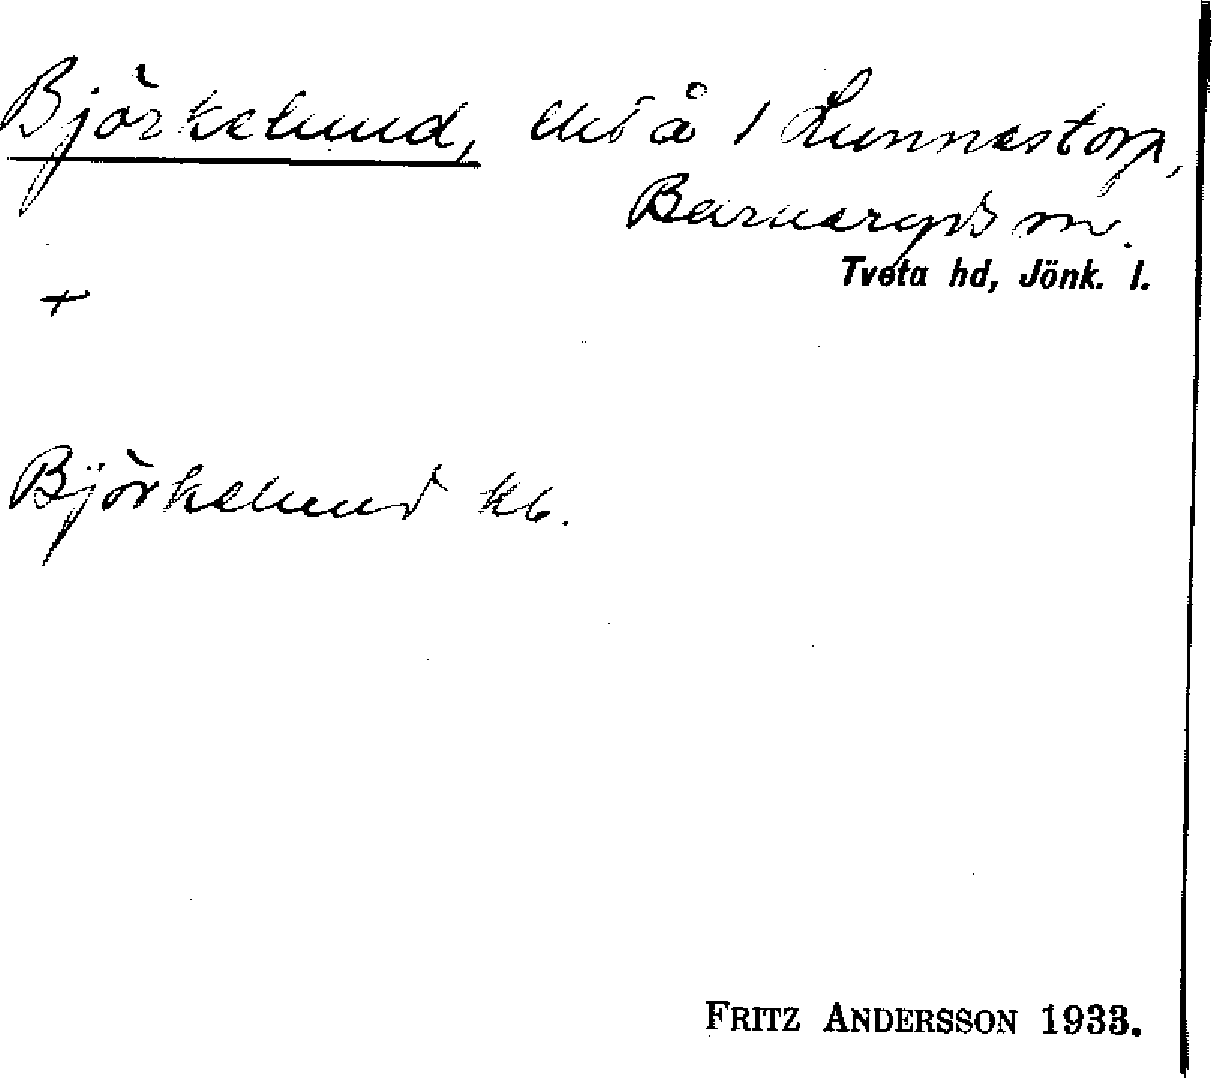 Björkelund, lht å 1 Lunnastorp,
Barnarps sn.
Tveta hd, Jönk. l.
+
Björkelund kb.
FRITZ ANDERSSON 1933.